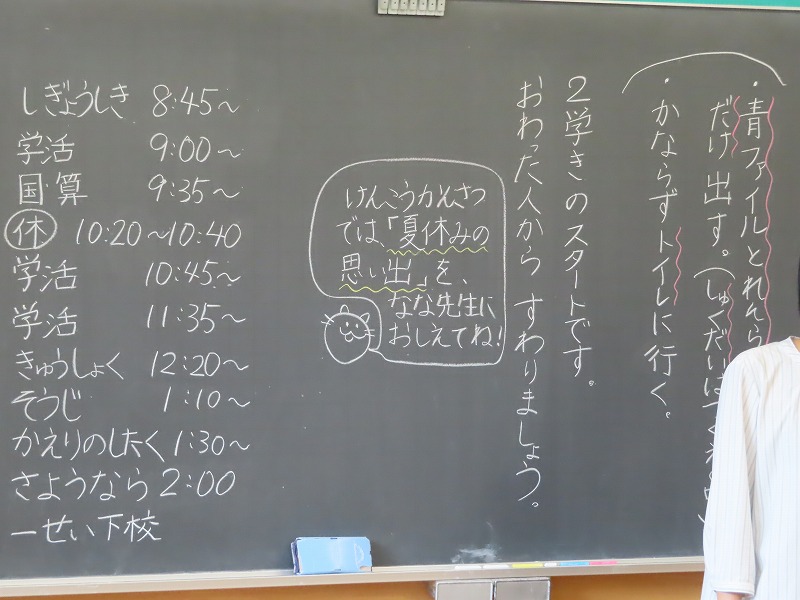 ・青ファイルとれんら
だけ出す。(しゅくだいは
・かならずトイレに行く。
2学きのスタートです。
おわった人から すわりましょう。
けんこうかんさつ
では「夏休みの
思い出」を、
なな先生に
おしえてね!
しぎょうしき 8:45～
学活 9:00～
国・算 9:35～
休 10:20～10:40
学活 10:45～
学活 11:35～
きゅうしょく 12:20～
そうじ 1:10～
かえりのしたく 1:30～
さようなら 2:00
一せい下校